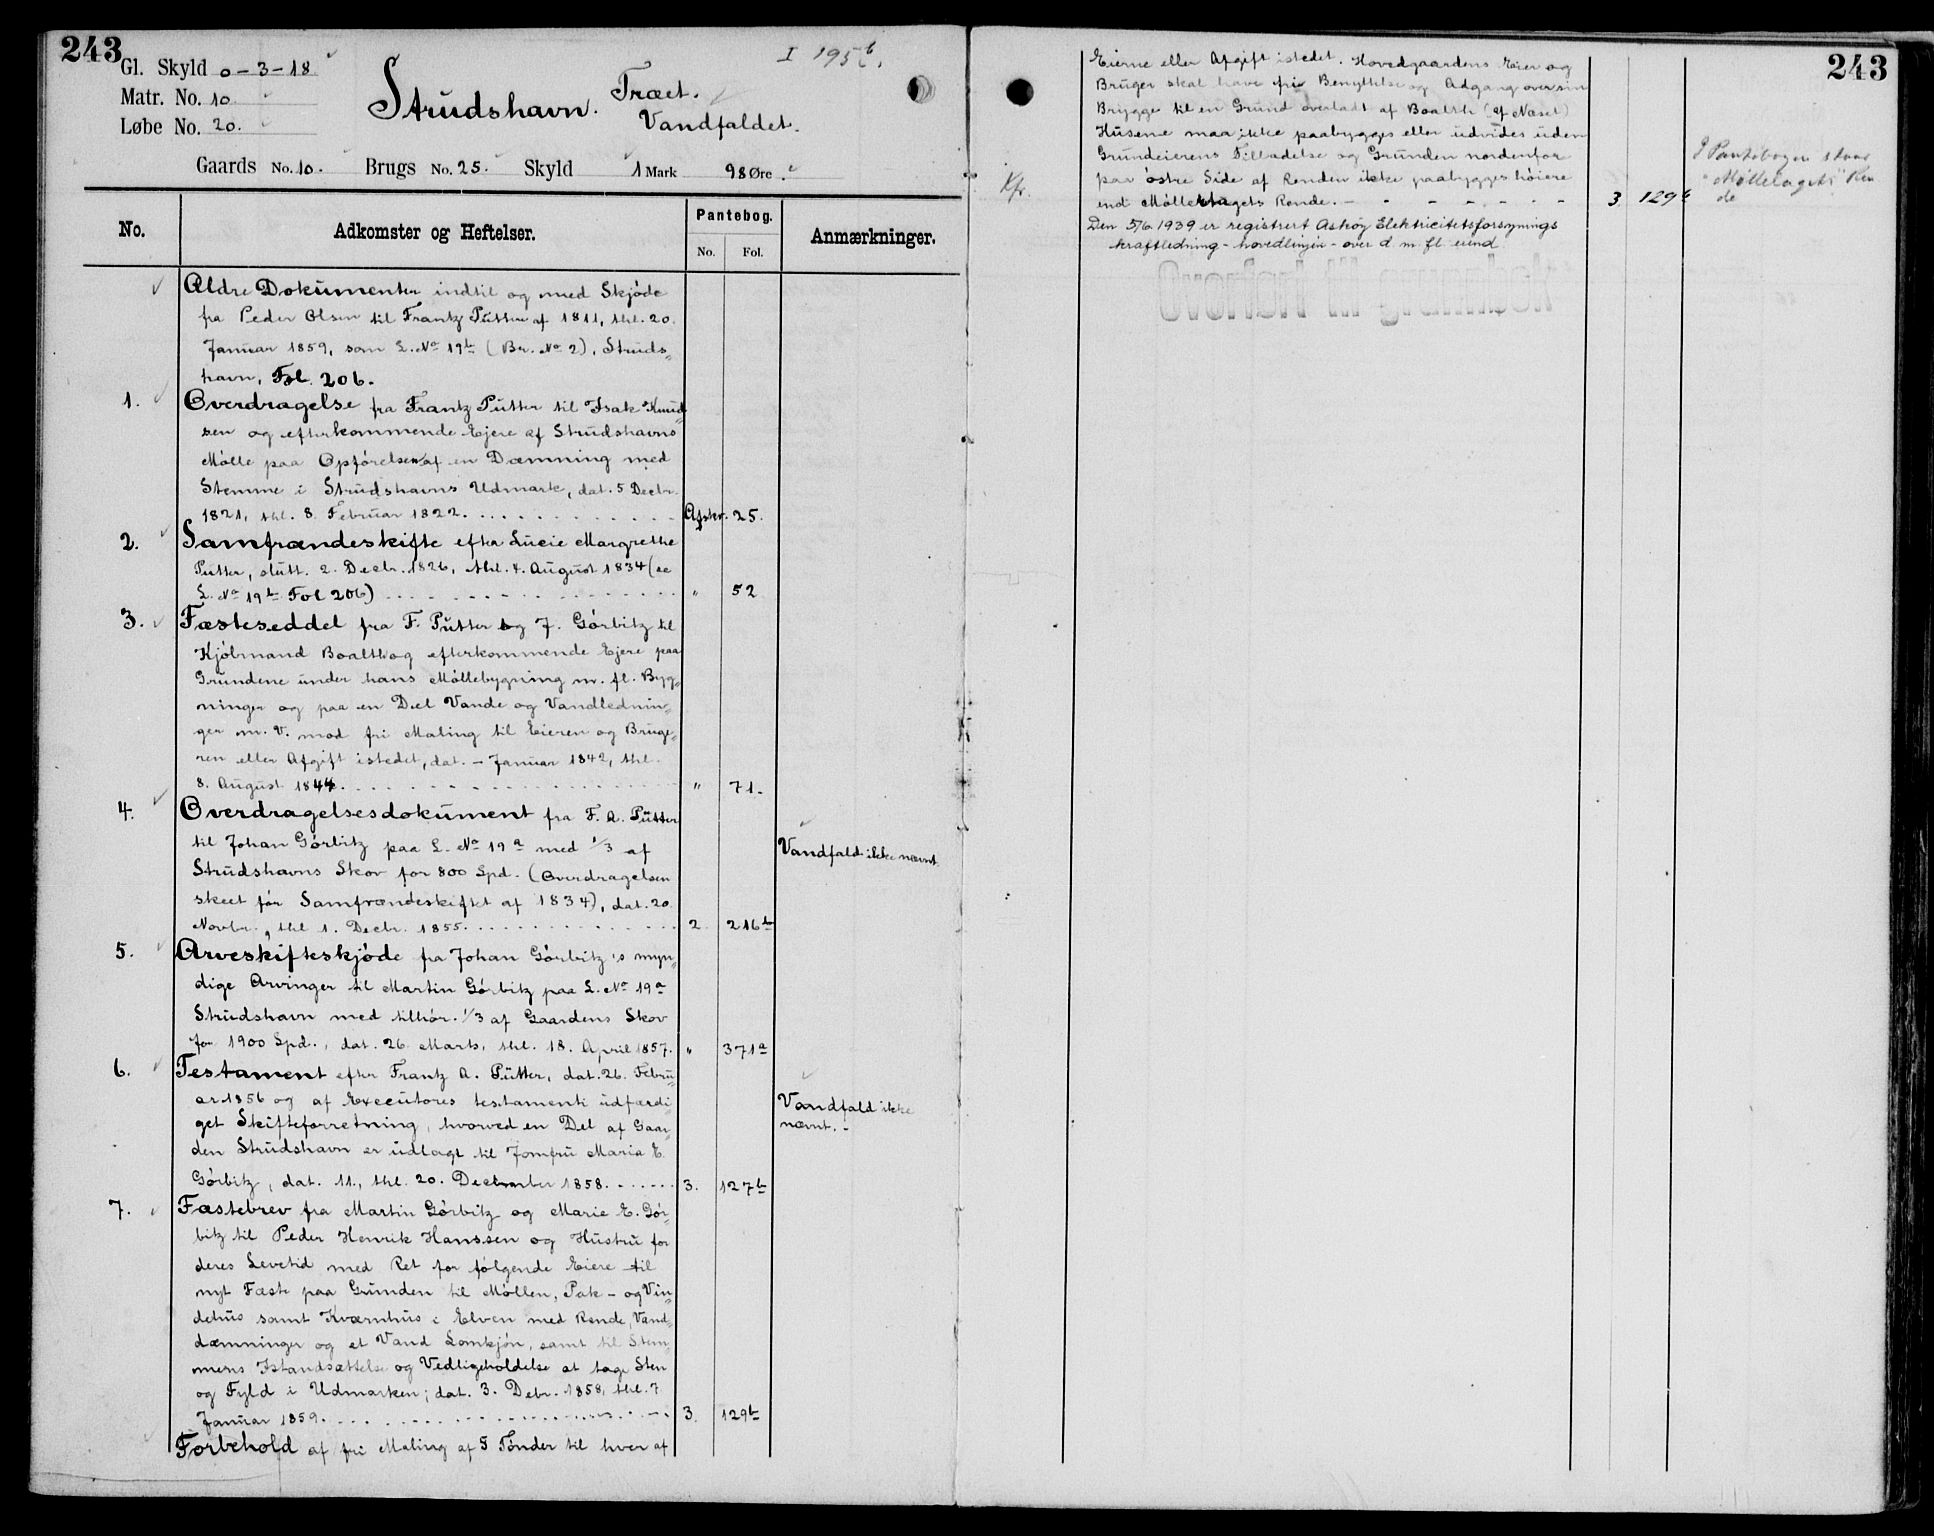 243
Gl. Skyld 0-3-18
Matr. No. 10
Løbe No. 20.
I 195 b.
Strudshavn. Træet.
Vandfaldet.
Gaards No. 10. Brugs No. 25. Skyld 1 Mark 98 Øre.
No.
Adkomster og Heftelser.
Pantebog.
No. Fol.
Anmærkninger.
Ældre Dokumenter indtil og med Skjøde
fra Peder Olsen til Frantz Pütter af 1811, thl. 20.
Januar 1859, som L. No 19b (Br. No 2), Struds„
havn, Fol. 206.
1. Overdragelse fra Frantz Pütter til Isak Knud„
sen og efterkommende Ejere af Strudshavns
Mølle paa Opførelsen af en Dæmning med
Stemme i Strudshavns Udmark, dat. 5 Decbr.
1821, thl. 8. Februar 1822. Afskr. 25.
2. Samfrændeskifte efter Lucie Margrethe
Pütter, slutt. 2. Decbr. 1826, thl. 4. August 1834 (se
L. No 19b Fol 206) " 52
3. Fæsteseddel fra F. Pütter og J. Gørbitz til
Kjøbmand Boalth og efterkommende Ejere paa
Grundene under hans Møllebygning m. fl. Byg„
ninger og paa en Del Vande og Vandlednin„
ger m. V. mod fri Maling til Eieren og Bruge„
ren eller Afgift istedet, dat. - Januar 1842, thl.
8. August 1844. " 71.
4. Overdragelsesdokument fra F. A. Pütter
til Johan Gørbitz paa L. No 19a med 1/3 af
Strudshavns Skov for 800 Spd. (Overdragelsen
skeet før Samfrændeskiftet af 1834), dat. 20.
Novbr., thl 1. Decbr. 1855. 2. 216b
Vandfald ikke nævnt.
5. Arveskifteskjøde fra Johan Gørbitz's myn„
dige Arvinger til Martin Gørbitz paa L. No 19a
Strudshavn med tilhør. 1/3 af Gaardens Skov
for 1900 Spd., dat. 26. Marts, thl. 18. April 1857. " 371a
6. Testament efter Frantz A. Pütter, dat. 26. Febru„
ar 1856 og af Executores testamenti udfærdi„
get Skifteforretning, hvorved en Del af Gaar„
den Strudshavn er udlagt til Jomfru Maria E.
Gørbitz, dat. 11., thl. 20. December 1858. 3. 127b
Vandfald ikke
nævnt.-
7. Fæstebrev fra Martin Gørbitz og Marie E. Gør„
bitz til Peder Henrik Hanssen og Hustru for
deres Levetid med Ret for følgende Eiere til
nyt Fæste paa Grunden til Møllen, Pak- og Vin„
dehus samt Kværnhus i Elven med Rende, Vand„
dæmninger og et Vand Lomkjøn, samt til Stem„
mens Istandsættelse og Vedligeholdelse at tage Sten
og Fyld i Udmarken; dat. 3. Debr. 1858, thl. 7
Januar 1859. 3. 129b
Forbehold af fri Maling af 5 Tønder til hver af
243
Eierne eller Afgift istedet. Hovedgaardens Eier og
Bruger skal have fri Benyttelse og Adgang over sin
Brygge til en Grund overladt af Boalth (af Næset)
Husene maa ikke paabygges eller udvides uden
Grundeierens Tilladelse og Grunden nordenfor
paa østre Side af Renden ikke paabygges høiere
end Møllelagets Rende. 3. 129b
Kfr.
I Pantebogen staar
"Møllelagets" Ren
de
Den 5/6 1939 er registrert Askøy Elektricitetsforsynings
kraftledning - hovedlinjen - over d. m. fl. eiend.